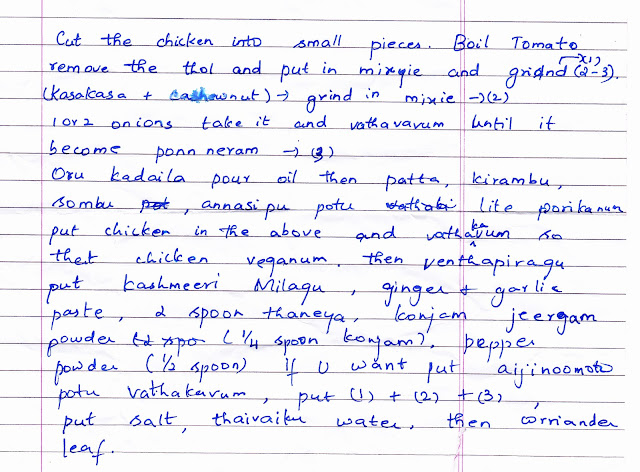 Cut the chicken into small pieces. Boil Tomato
remove the thol and put in mixyie and grind (2-3). (1)
(Kasakasa + cashewnut) → grind in mixie → (2)
1 or 2 onions take it and vathavavum until it
become ponn neram → (3)
Oru kadaila pour oil then patta, kirambu,
sombu, annasipu potu lite porikanum
put chicken in the above and vathakavum so
that chicken veganum. then venthapiragu
put kashmeeri Milagu, ginger & garlic
paste, 2 spoon thaneya, konjam jeergam
powder (1/4 spoon konjam), pepper
powder (1/2 spoon) if U want put aijinoomoto
potu vathakavum, put (1) + (2) + (3),
put salt, thaivaiku water, then corriander
leaf.